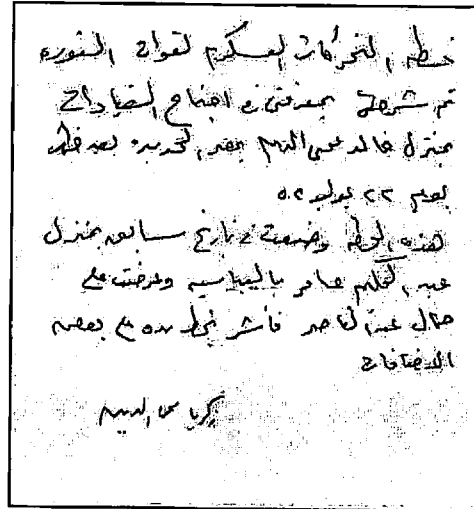 خطة التحركات العسكرية لقوات الثورة
تم شرحها بمعرفتى فى اجتماع القيادات
بمنزل خالد محى الدين بمصر الجديدة بعد ظهر
يوم ٢٢ يوليو ٥٢
هذه الخطة وضعت فى تاريخ سابق بمنزل
عبد الحكيم عامر بالعباسيه وعرضت على
جمال عبد الناصر فأشر بخط يده على بعض
الاضافات
زكريا محى الدين